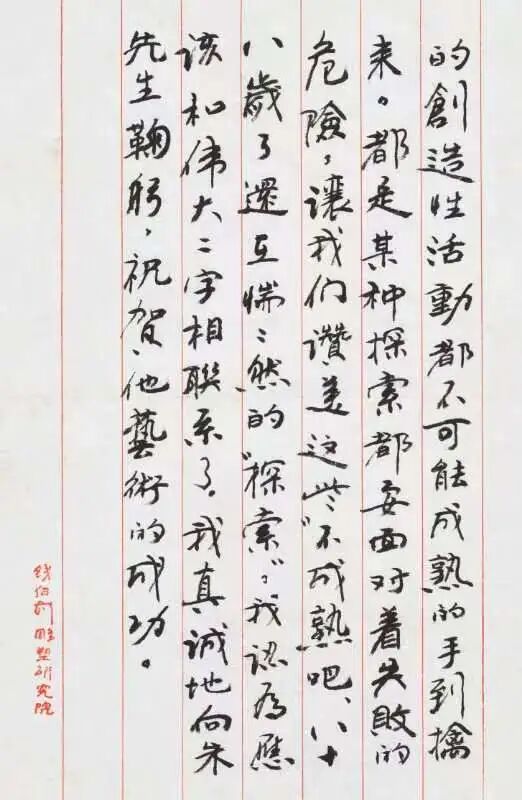 的創造性活動都不可能成熟的手到擒
来。都是某种探索都要面对着失敗的
危險，讓我们讚美这些“不成熟吧、八十
八歲了還互惴〻然的“探索”，我認為應
该和伟大二字相联系了。我真诚地向朱
先生鞠躬，祝贺、他藝術的成功。
钱绍武雕塑研究院